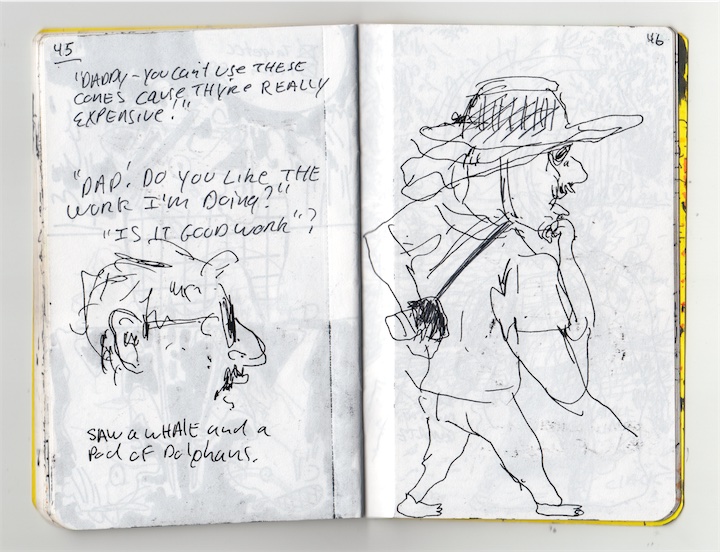 45
"DADDY - YOU CAN'T USE THESE
CONES CAUSE THYRE REALLY
EXPENSIVE!"
"DAD! DO YOU LIKE THE
WORK I'M DOING?"
"IS IT GOOD WORK"?
SAW a WHALE and a
Pod of Dolphans.
46